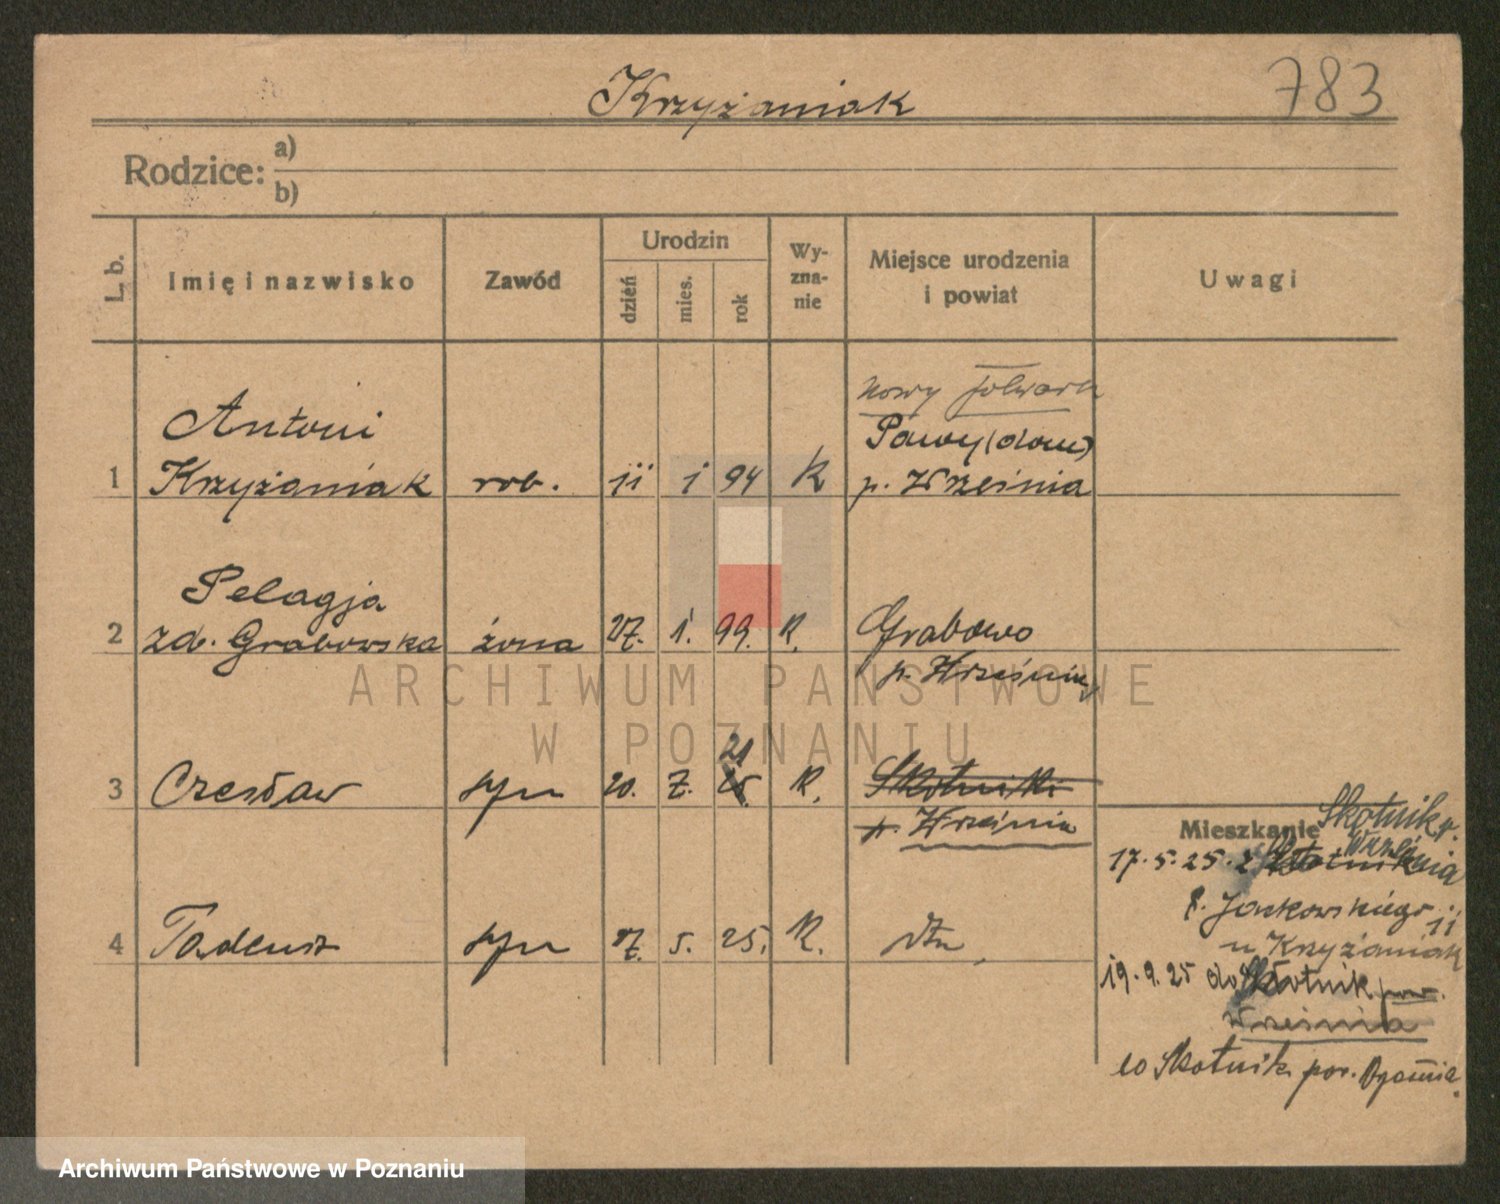 Krzyżaniak
783
Rodzice:
a)
b)
L. b.
Imię i nazwisko
Zawód
Urodzin
dzień
mies.
rok
Wy-
zna-
nie
Miejsce urodzenia
i powiat
Uwagi
nowy folwark
Antoni
Pawy (dom)
1 Krzyżaniak rob. 11 1 94 K p. Września
Pelagja
2 zd. Grabowska żona 27. 1. 99. K. Grabowo
p. Września
21
3 Czesław syn 20. 7. 25. K. Skotniki
p. Września
Mieszkanie Skotnik p.
Września
17.5.25.
P. Jackowskiego 11
u Krzyżaniak
4 Tadeusz syn 27. 5. 25. K. dtn
19.9.25 do Skotnik pow.
Września
do Skotnik pow.
ARCHIWUM PAŃSTWOWE
W POZNANIU
Archiwum Państwowe w Poznaniu